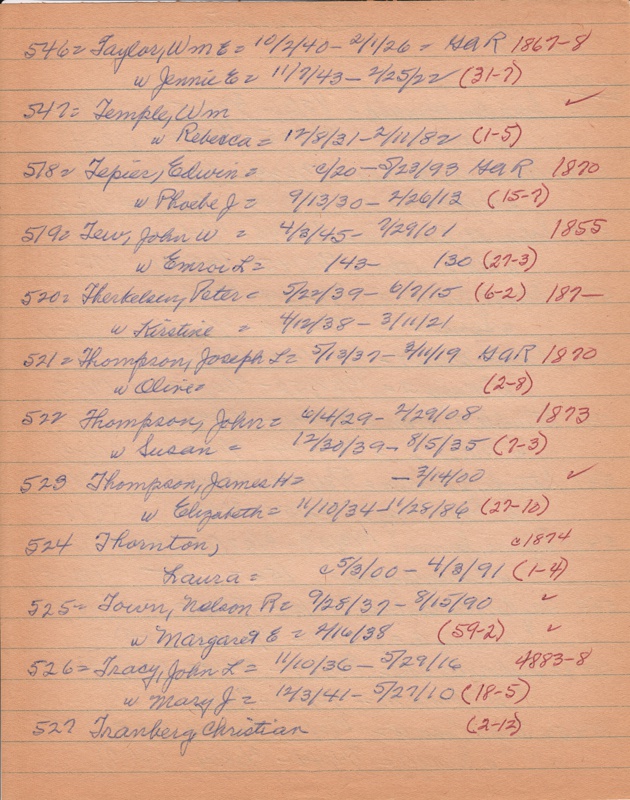 546 = Taylor, Wm E = 10/2/40 - 2/1/26 = GAR 1867-8
w Jennie E = 11/7/43 - 2/25/22 (31-7)
547 = Temple, Wm ✓
w Rebecca = 12/8/31 - 2/11/82 (1-5)
518 = Tepier, Edwin = c/20 - 5/23/93 GAR 1870
w Phoebe J = 9/13/30 - 2/26/13 (15-7)
519 = Tew, John W = 4/3/45 - 7/29/01 1855
w Emroi L = 143 - 130 (27-3)
520 = Therkelsen, Peter = 5/22/39 - 6/7/15 (6-2) 187-
w Kirstine = 4/12/38 - 3/11/21
521 = Thompson, Joseph L = 5/13/37 - 3/11/19 GAR 1870
w Olive = (2-8)
522 Thompson, John = 6/4/29 - 2/29/08 1873
w Susan = 12/30/39 - 8/5/35 (7-3)
523 Thompson, James H = - 3/14/00 ✓
w Elizabeth = 11/10/34 - 11/28/86 (27-10)
524 Thornton, c1874
Laura = c 5/3/00 - 4/3/91 (1-4)
525 = Town, Nelson R = 9/28/37 - 8/15/90 ✓
w Margaret E = 2/16/38 (59-2) ✓
526 = Tracy, John L = 11/10/36 - 5/29/16 4883-8
w Mary J = 12/3/41 - 5/27/10 (18-5)
527 Tranberg, Christian (2-12)